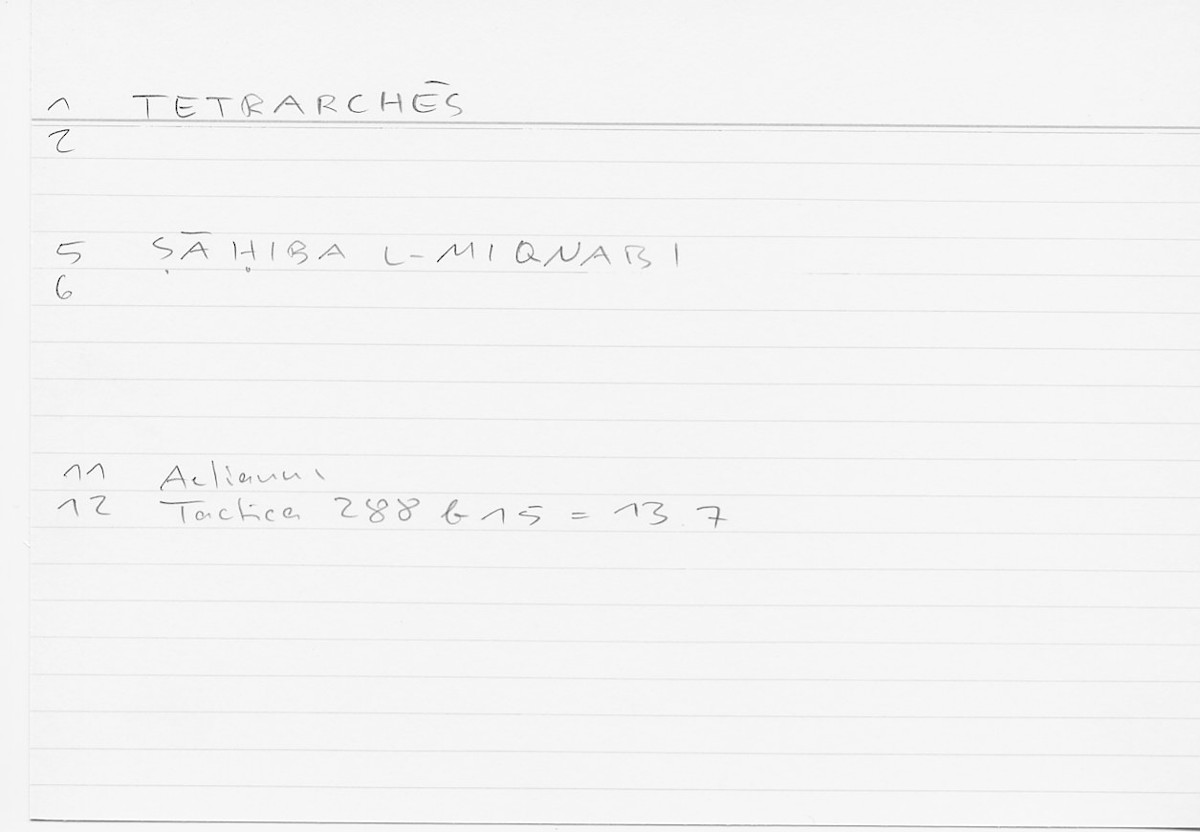 1 TETRARCHĒS
2
5 ṢĀḤIBA L-MIQNABI
6
11 Aelianus
12 Tactica 288 b 15 = 13.7